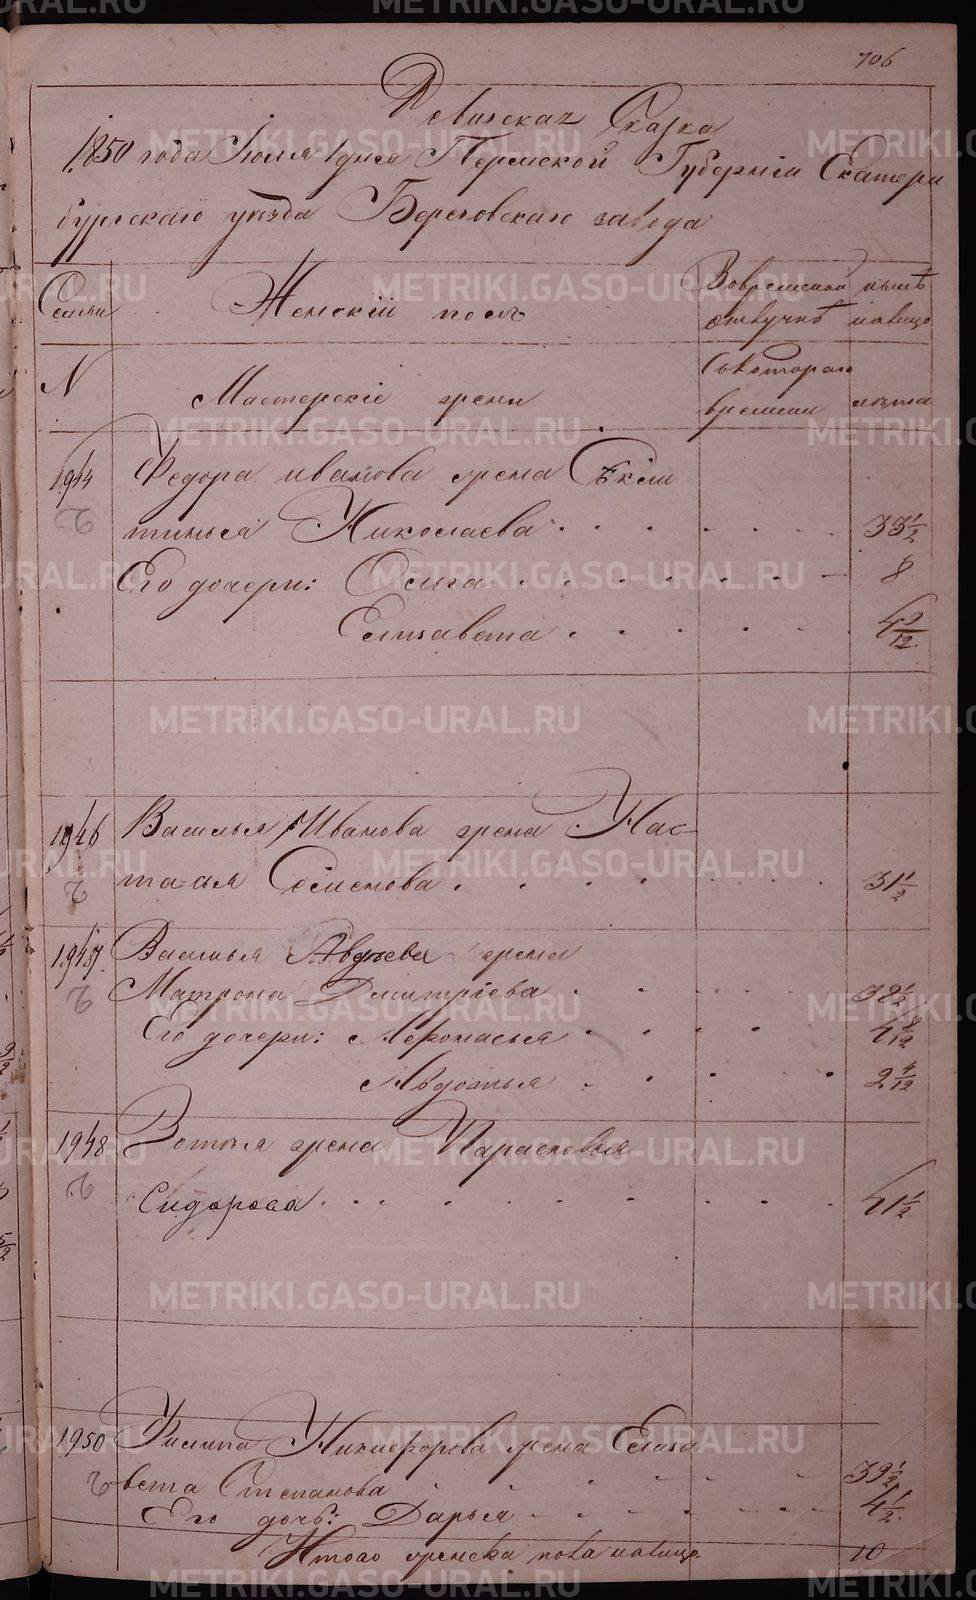 706
Ревизская Сказка
1850 года Июля 1 дня Пермской Губернiи Екатери
бургскаго уѣзда Березовскаго завода
Семьи
Женскiй полъ
Вовременной отлучкѣ
нынѣ на лицо
N
Мастерскiе жены
Съ котораго времени
лѣта
1944
Федора Иванова жена
тинья Николаева 33 1/2
Его дочери: Ольга 8
Елизавета 4 9/12
1946
Василья Иванова жена Нас-
тасья Семенова 31 1/2
1947
Василья Авдѣева жена
Матрона Дмитрiева 38 1/2
Его дочери: Афонасья 4 8/12
Авдотья 2 4/12
1948
Зотья жена Парасковья
Сидорова 41 1/2
1950
Филипа Никифорова жена Елиза
вета Степанова 39 1/2
Его дочь: Дарья 4 1/2
Итого женска пола на лицо 10
METRIKI.GASO-URAL.RU